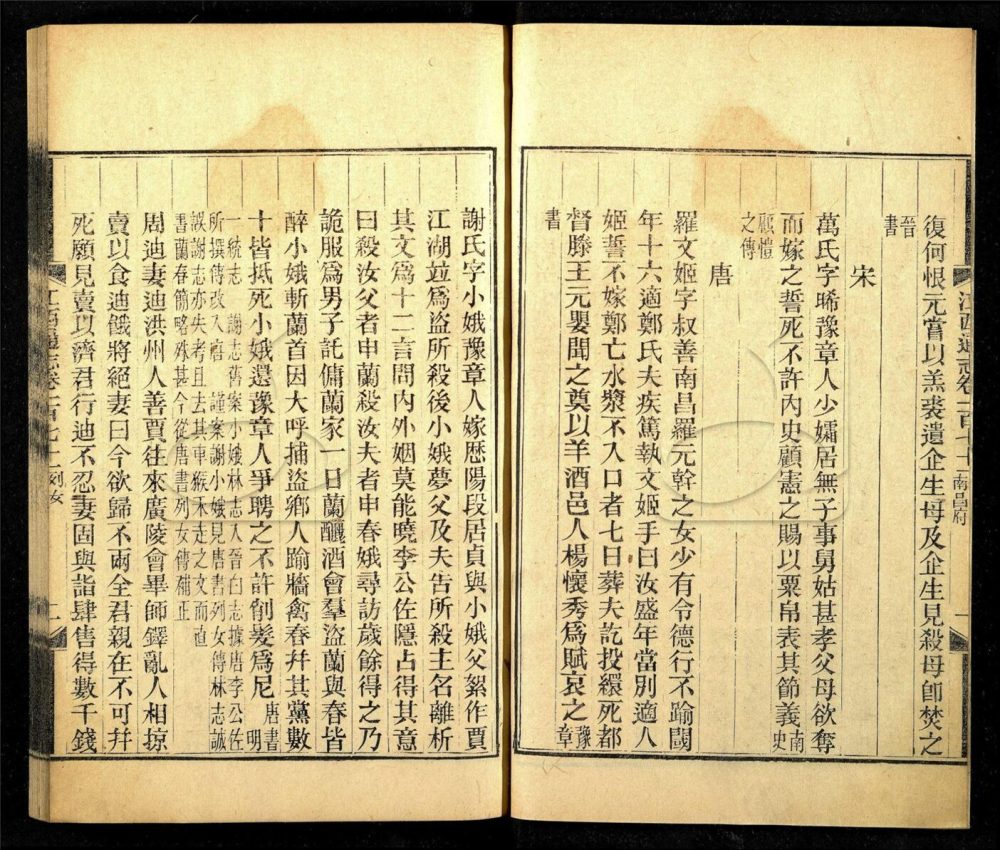 復何恨元嘗以羔裘遺企生母及企生見殺母卽焚之
晉書
宋
萬氏字晞豫章人少孀居無子事舅姑甚孝父母欲奪
而嫁之誓死不許內史顧憲之賜以粟帛表其節義南史
顧愷之傳
唐
羅文姬字叔善南昌羅元幹之女少有令德行不踰閾
年十六適鄭氏夫疾篤執文姬手曰汝盛年當別適人
姬誓不嫁鄭亡水漿不入口者七日葬夫訖投繯死都
督滕王元嬰聞之奠以羊酒邑人楊懷秀爲賦哀之豫章
書
江西通志卷一百七十 南昌府 一
謝氏字小娥豫章人嫁歷陽段居貞與小娥父絮作賈
江湖竝爲盜所殺後小娥夢父及夫告所殺主名離析
其文爲十二言問內外姻莫能曉李公佐隱占得其意
曰殺汝父者申蘭殺汝夫者申春娥尋訪歲餘得之乃
詭服爲男子託傭蘭家一日蘭釃酒會羣盜蘭與春皆
醉小娥斬蘭首因大呼捕盜鄉人踰牆禽春幷其黨數
十皆抵死小娥還豫章人爭聘之不許削髮爲尼唐書 明
一統志 謝志舊案小娥林志入晉白志據唐李公佐
所撰傳改入唐 謹案謝小娥見唐書列女傳林志誠
誤謝志亦失考且去其車猴禾走之文而直
書蘭春簡略殊甚今從唐書列女傳補正
周迪妻迪洪州人善賈往來廣陵會畢師鐸亂人相掠
賣以食迪餓將絕妻曰今欲歸不兩全君親在不可幷
死願見賣以濟君行迪不忍妻固與詣肆售得數千錢
江西通志卷一百七十二 列女 二